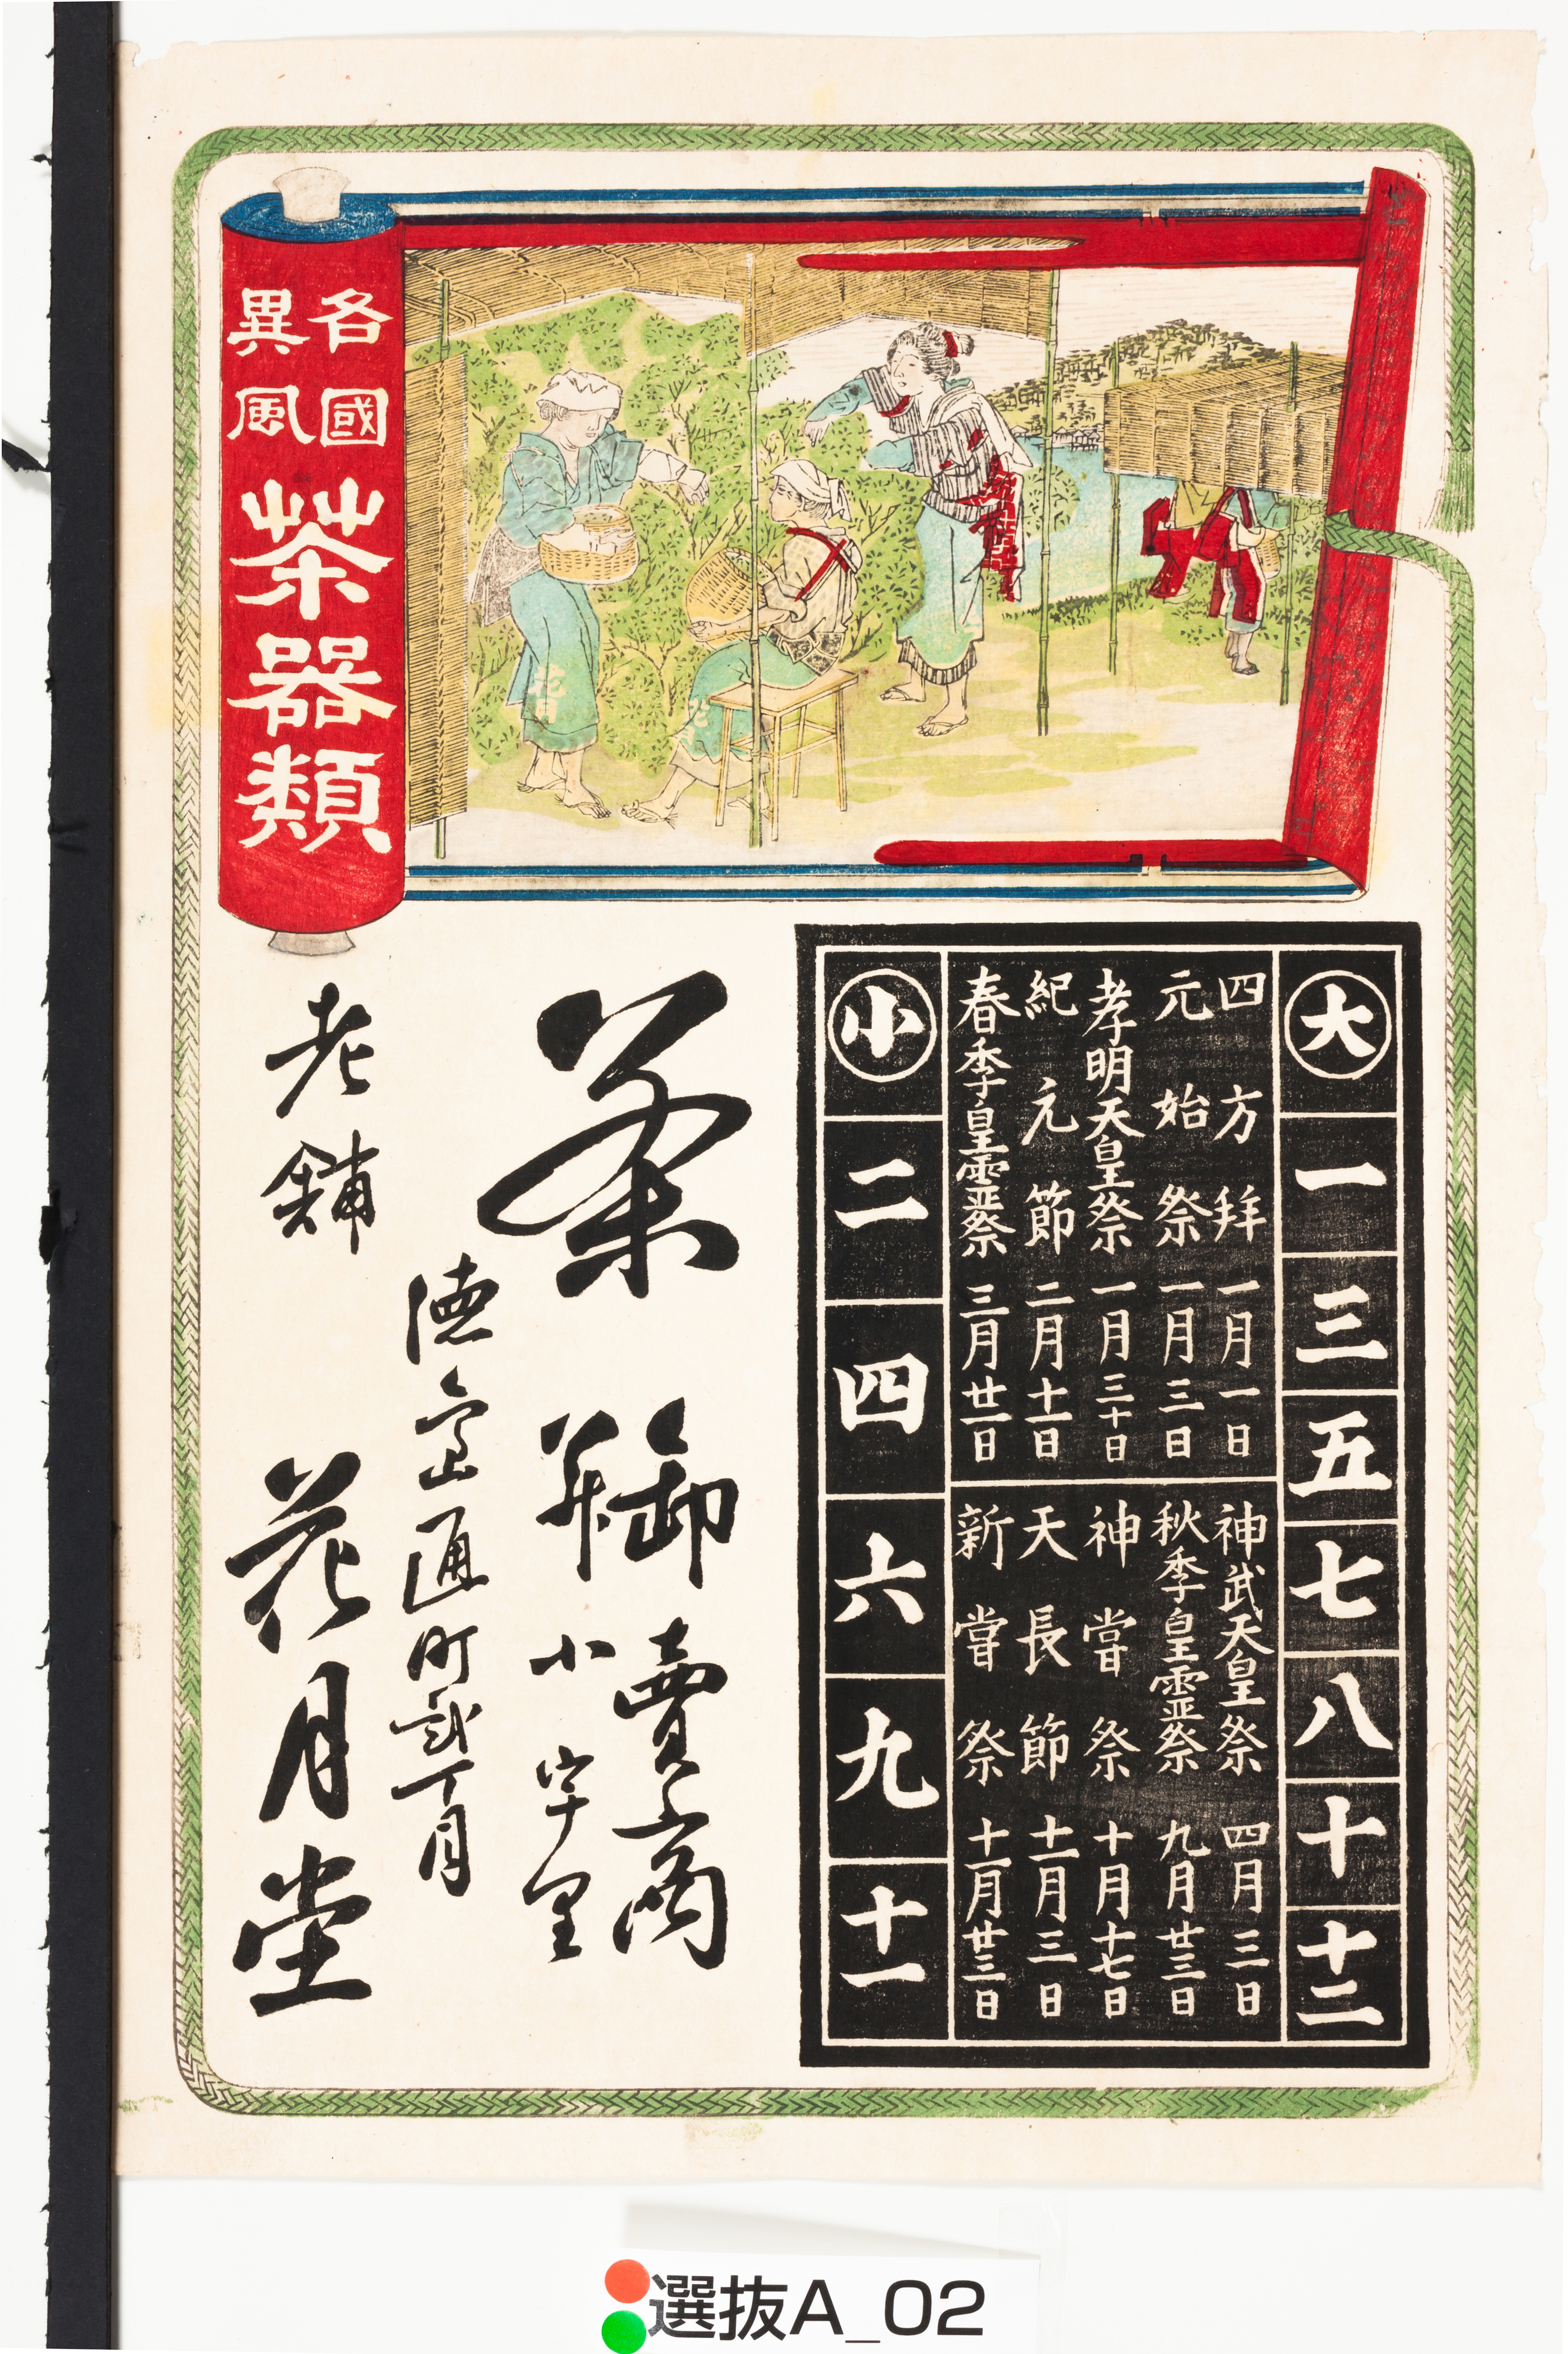 各國
異風
茶器類
大 一 三 五 七 八 十 十二
四方拜 一月一日
元始祭 一月三日
孝明天皇祭 一月三十日
紀元節 二月十一日
春季皇霊祭 三月廿一日
神武天皇祭 四月三日
秋季皇霊祭 九月廿三日
神嘗祭 十月十七日
天長節 十一月三日
新嘗祭 十一月廿三日
小 二 四 六 九 十一
茶
卸賣商
并小
徳島通町貳丁目
老舗
花月堂
花月
選抜A_02